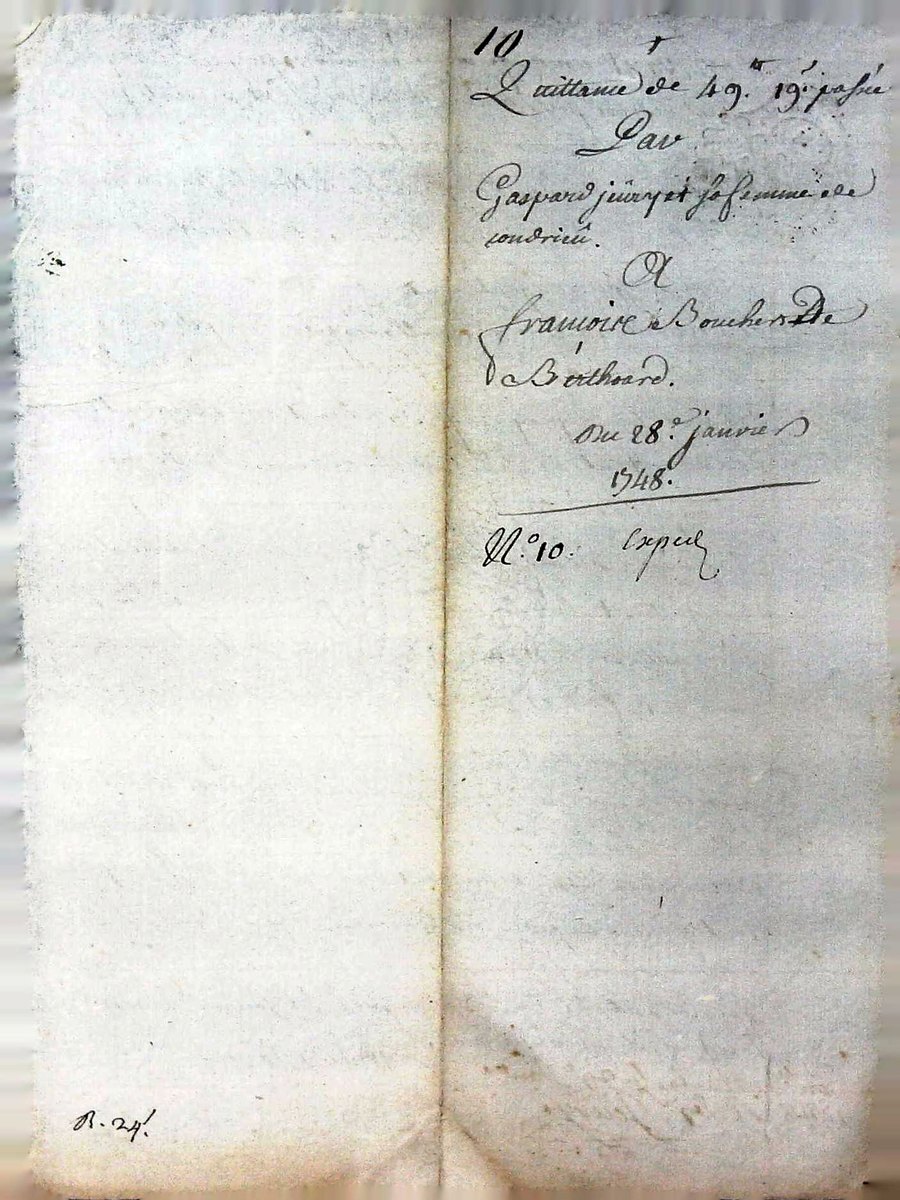 10
Quittance de 49.tt 19.s passée
Par
Gaspard jüry et sa femme de
condrieü.
A
francoise Boucher De
Berthoard.
Du 28.e janvier
1748.
N.o 10. Exped
R. 24s.